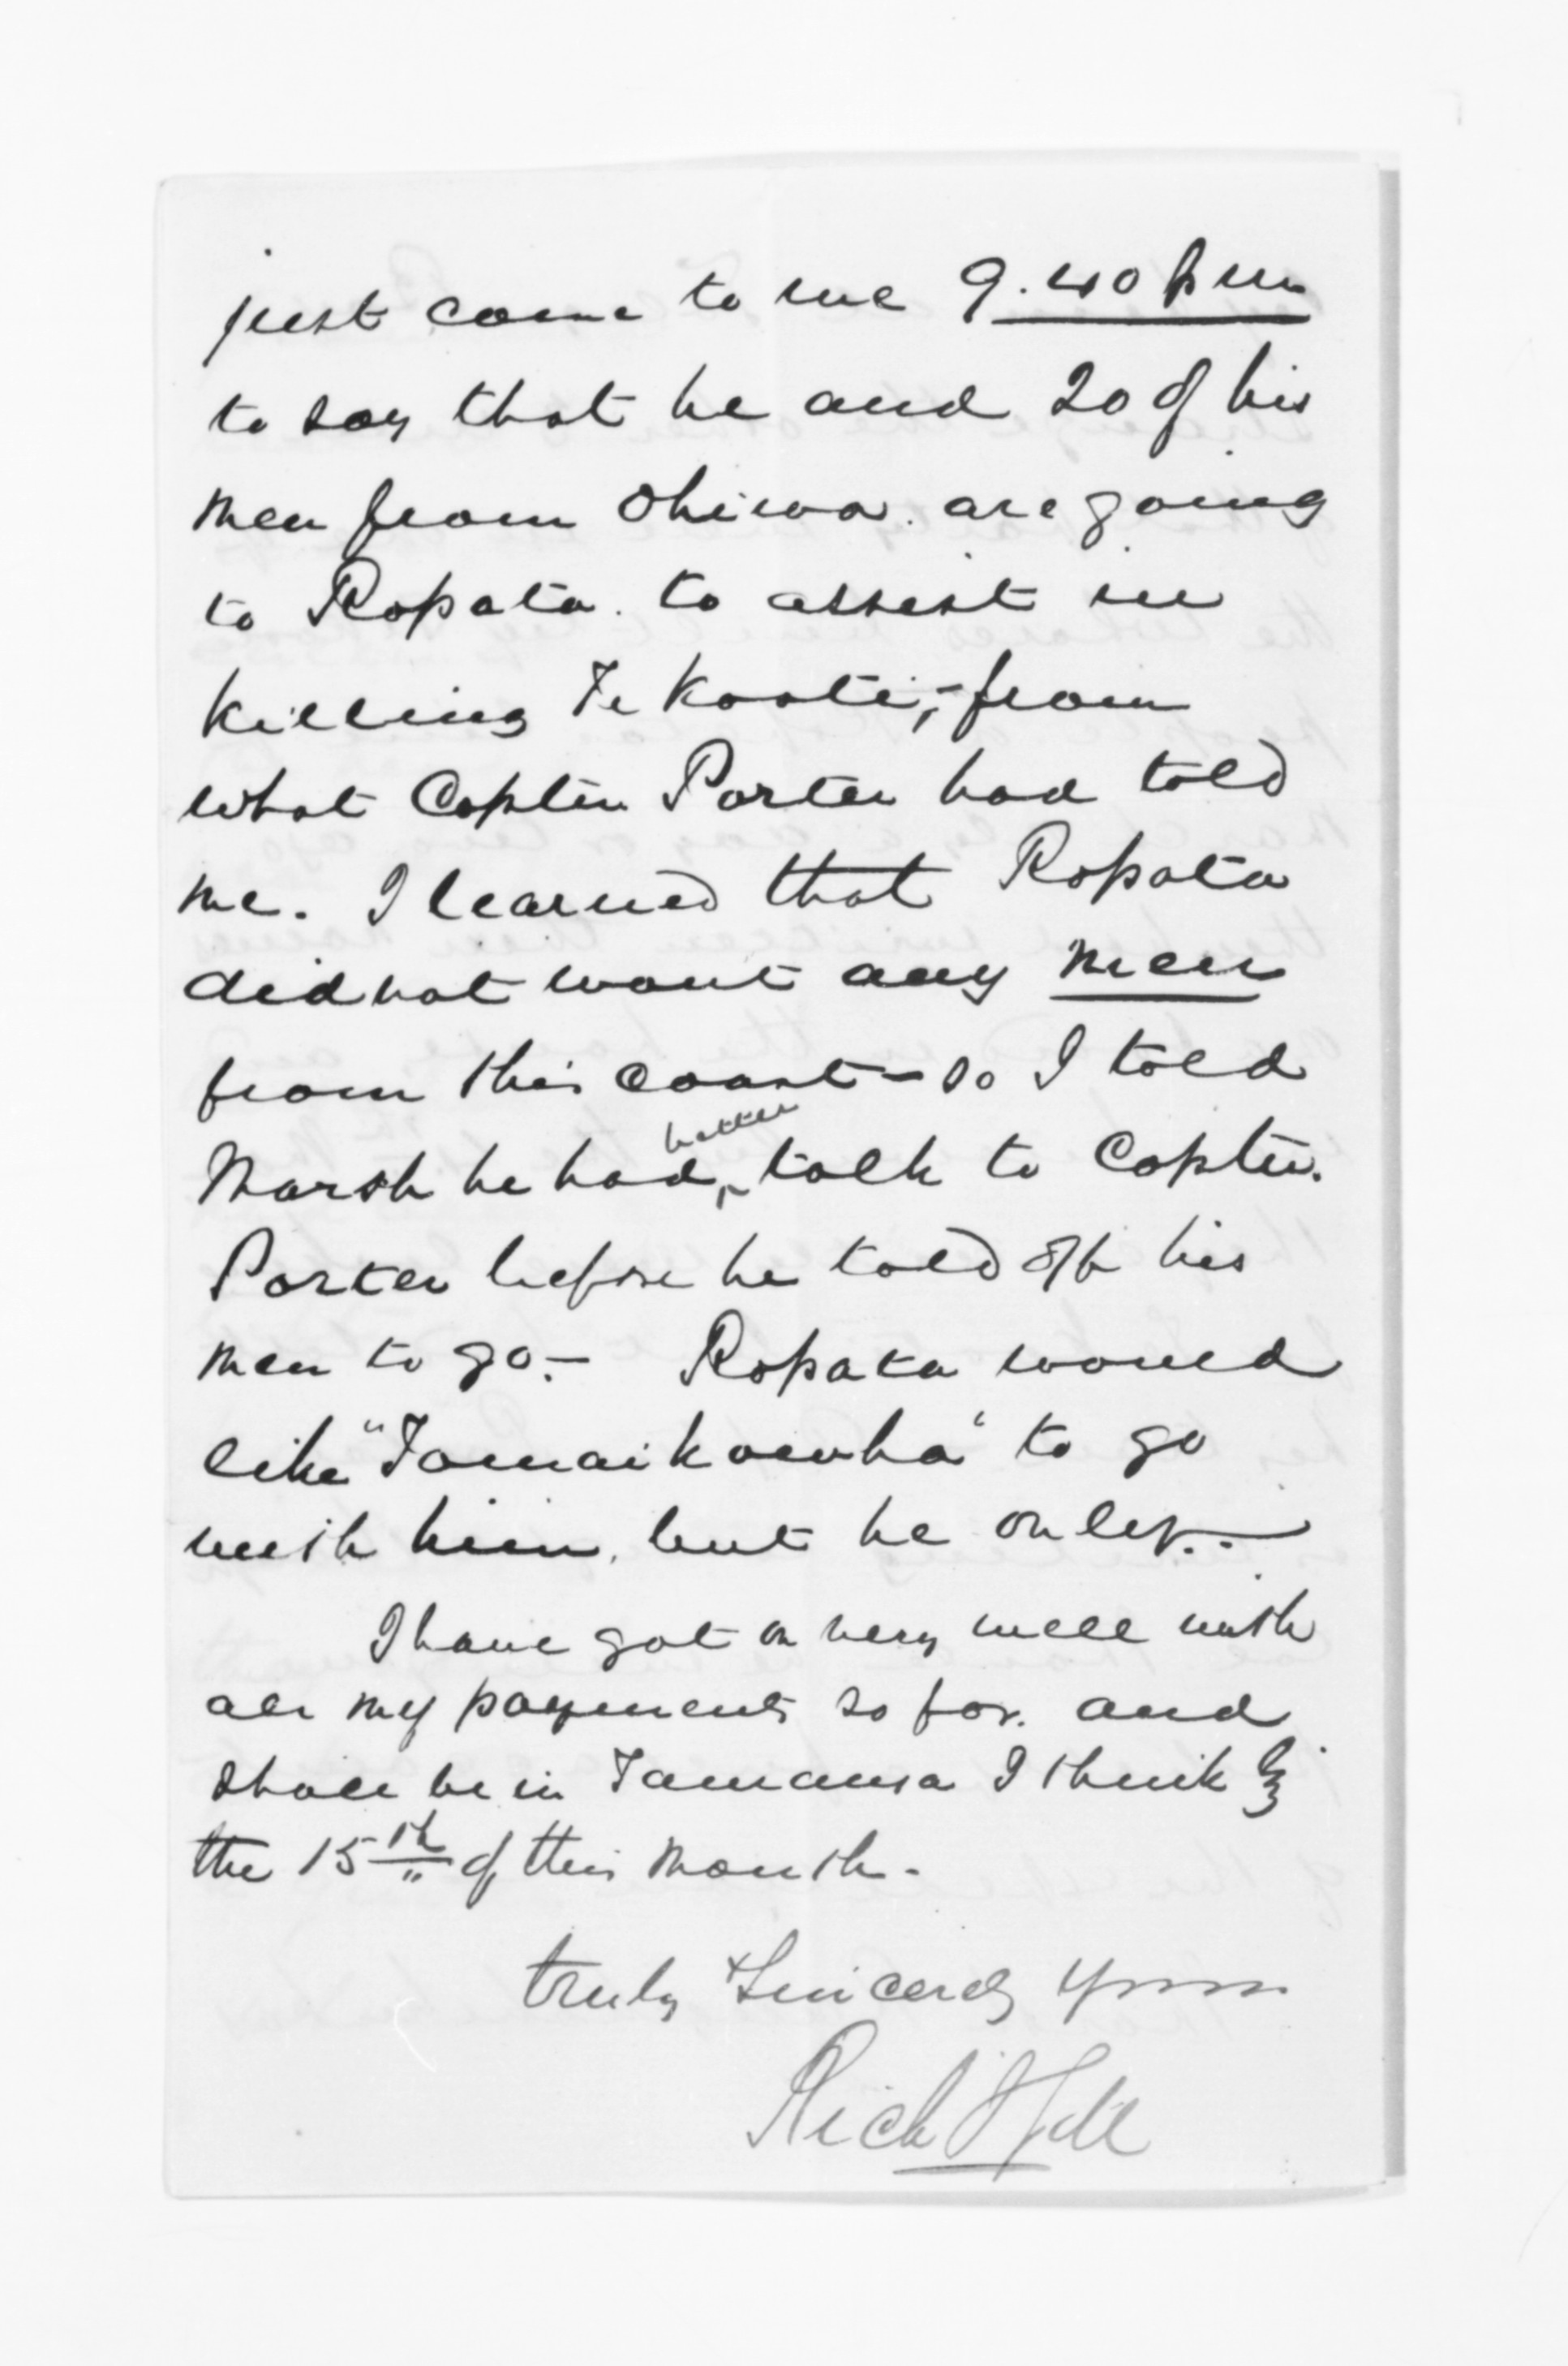 just come to me 9.40 pm
to say that he and 20 of his
men from Ohiwa. are going
to Ropata. to assist in
killing Te Kooti;- from
what Captin Porter had told
me. I learned that Ropata
did not want any men
from this coast - so I told
Marsh he had better talk to Captin.
Porter before he told off his
men to go.- Ropata would
like "Tamaikowha" to go
with him, but he only..-
I have got on very well with
all my payments so far. and
shall be in Tauranga I think by
the 15th of this month-
truly Sincerely yours
Rich